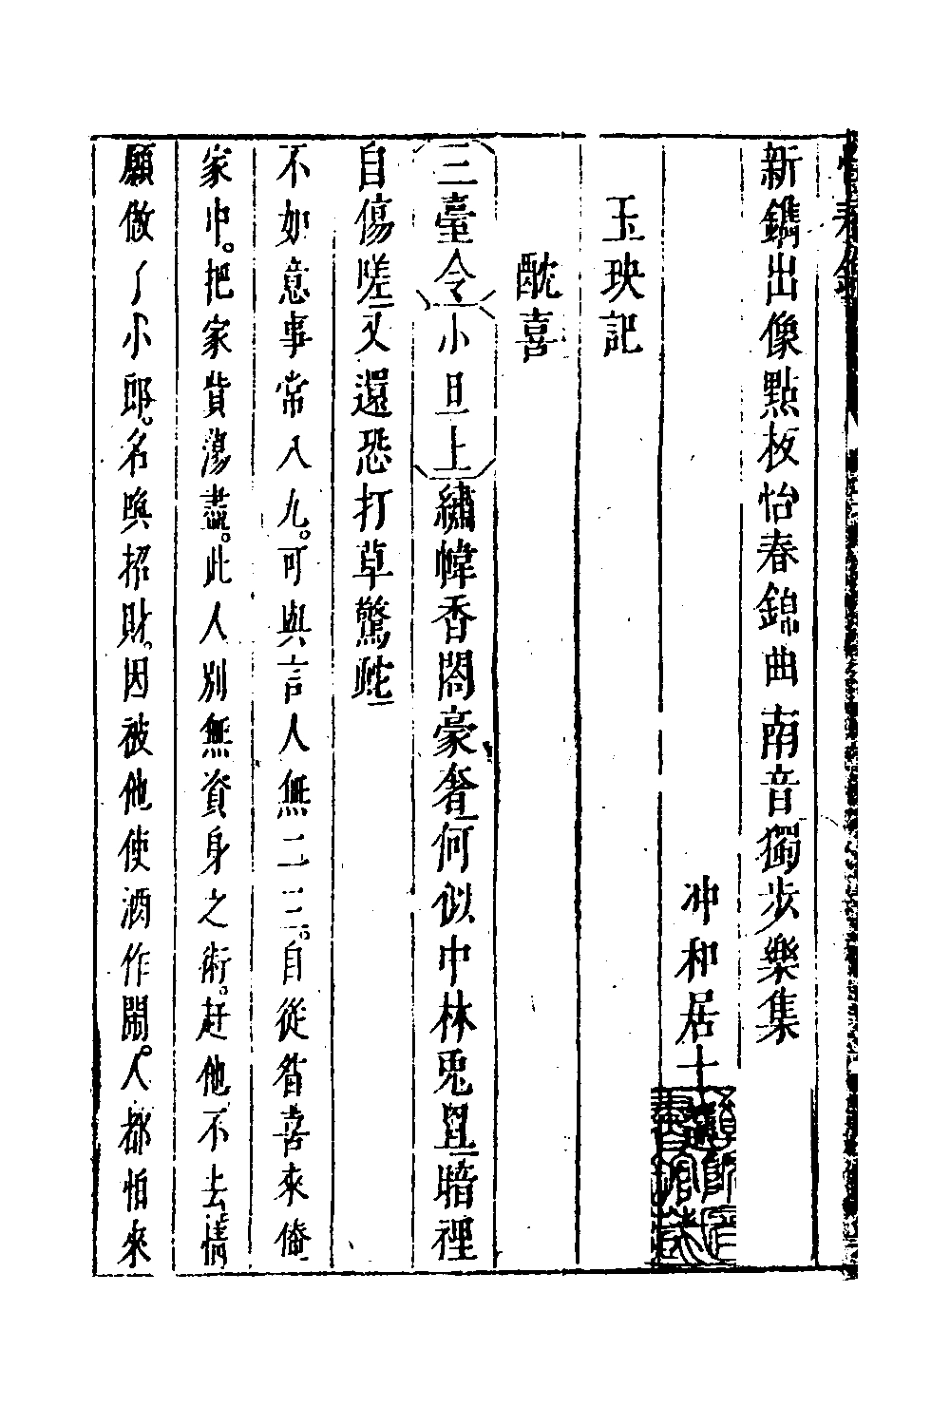 新鐫出像點板怡春錦曲南音獨步樂集
冲和居士
玉玦記
酖喜
三臺令小旦上繡幃香閣豪奢何似中林兎罝暗裡
自傷嗟又還恐打草驚蛇
不如意事常八九。可與言人無二三。自從昝喜來俺
家中。把家貲蕩盡。此人別無資身之術。赶他不去。情
願做了小郎。名喚招財。因被他使酒作鬧。人都怕來